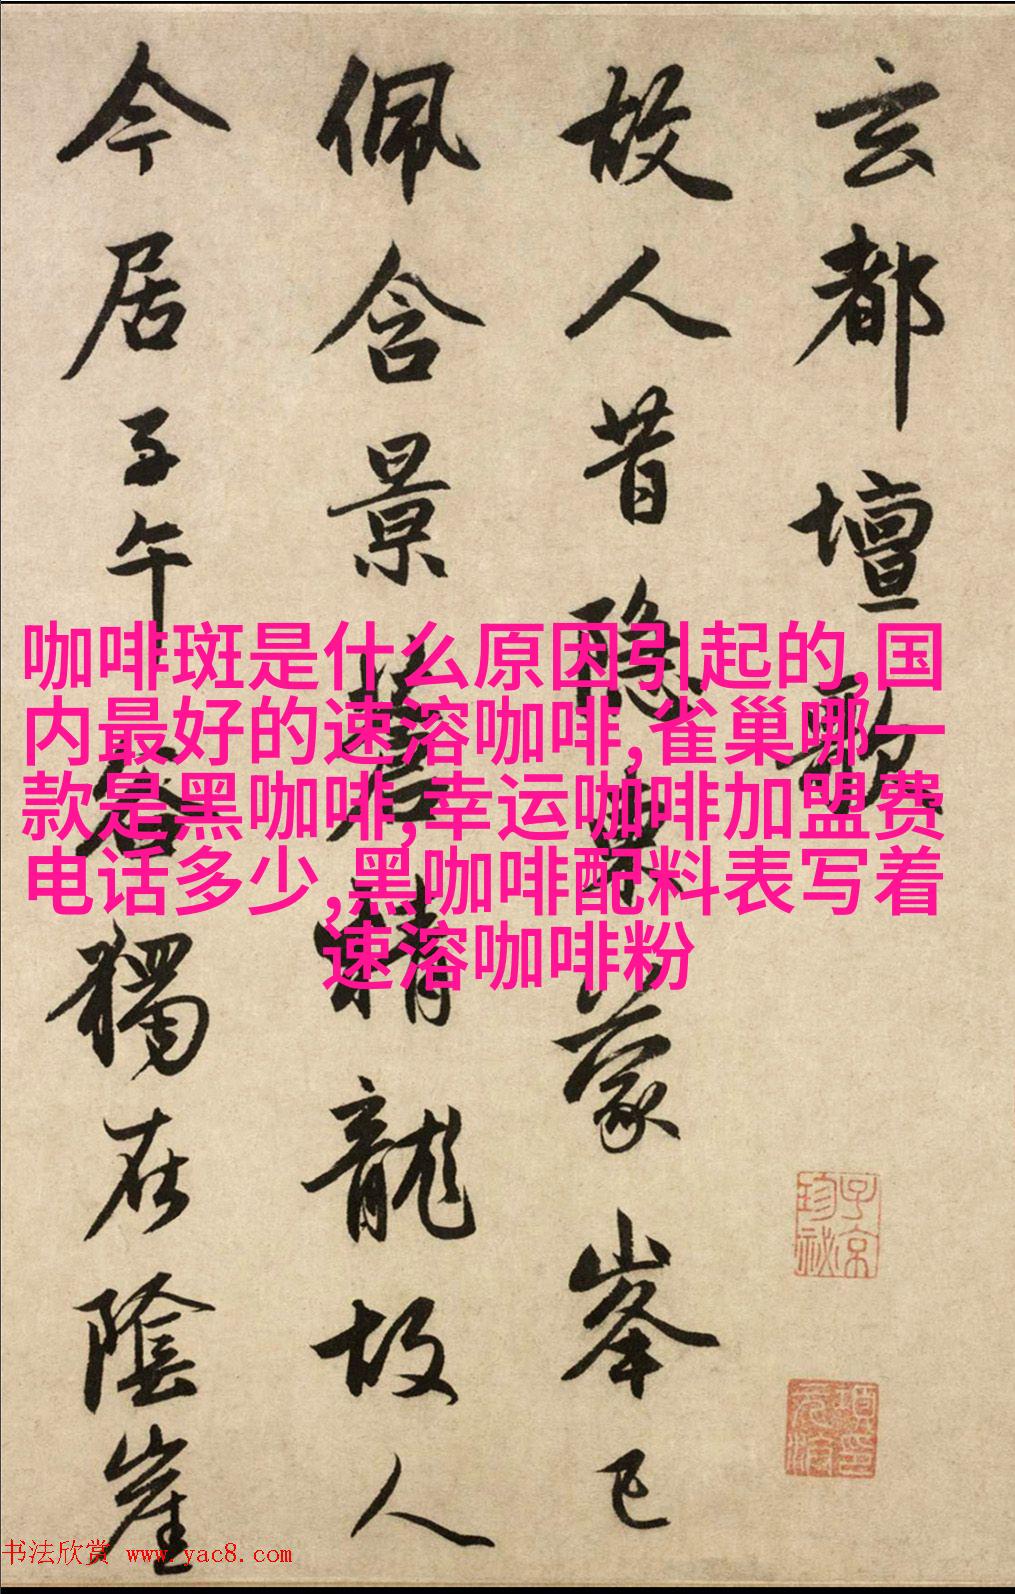 玄都壇歌
故人昔隱東蒙峯已
佩含景蒼精龍故人
今居子午谷獨在陰崖
咖啡斑是什么原因引起的,国
内最好的速溶咖啡,雀巢哪一
款是黑咖啡,幸运咖啡加盟费
电话多少,黑咖啡配料表写着
速溶咖啡粉
子京
珍祕
书法欣赏 www.yac8.com